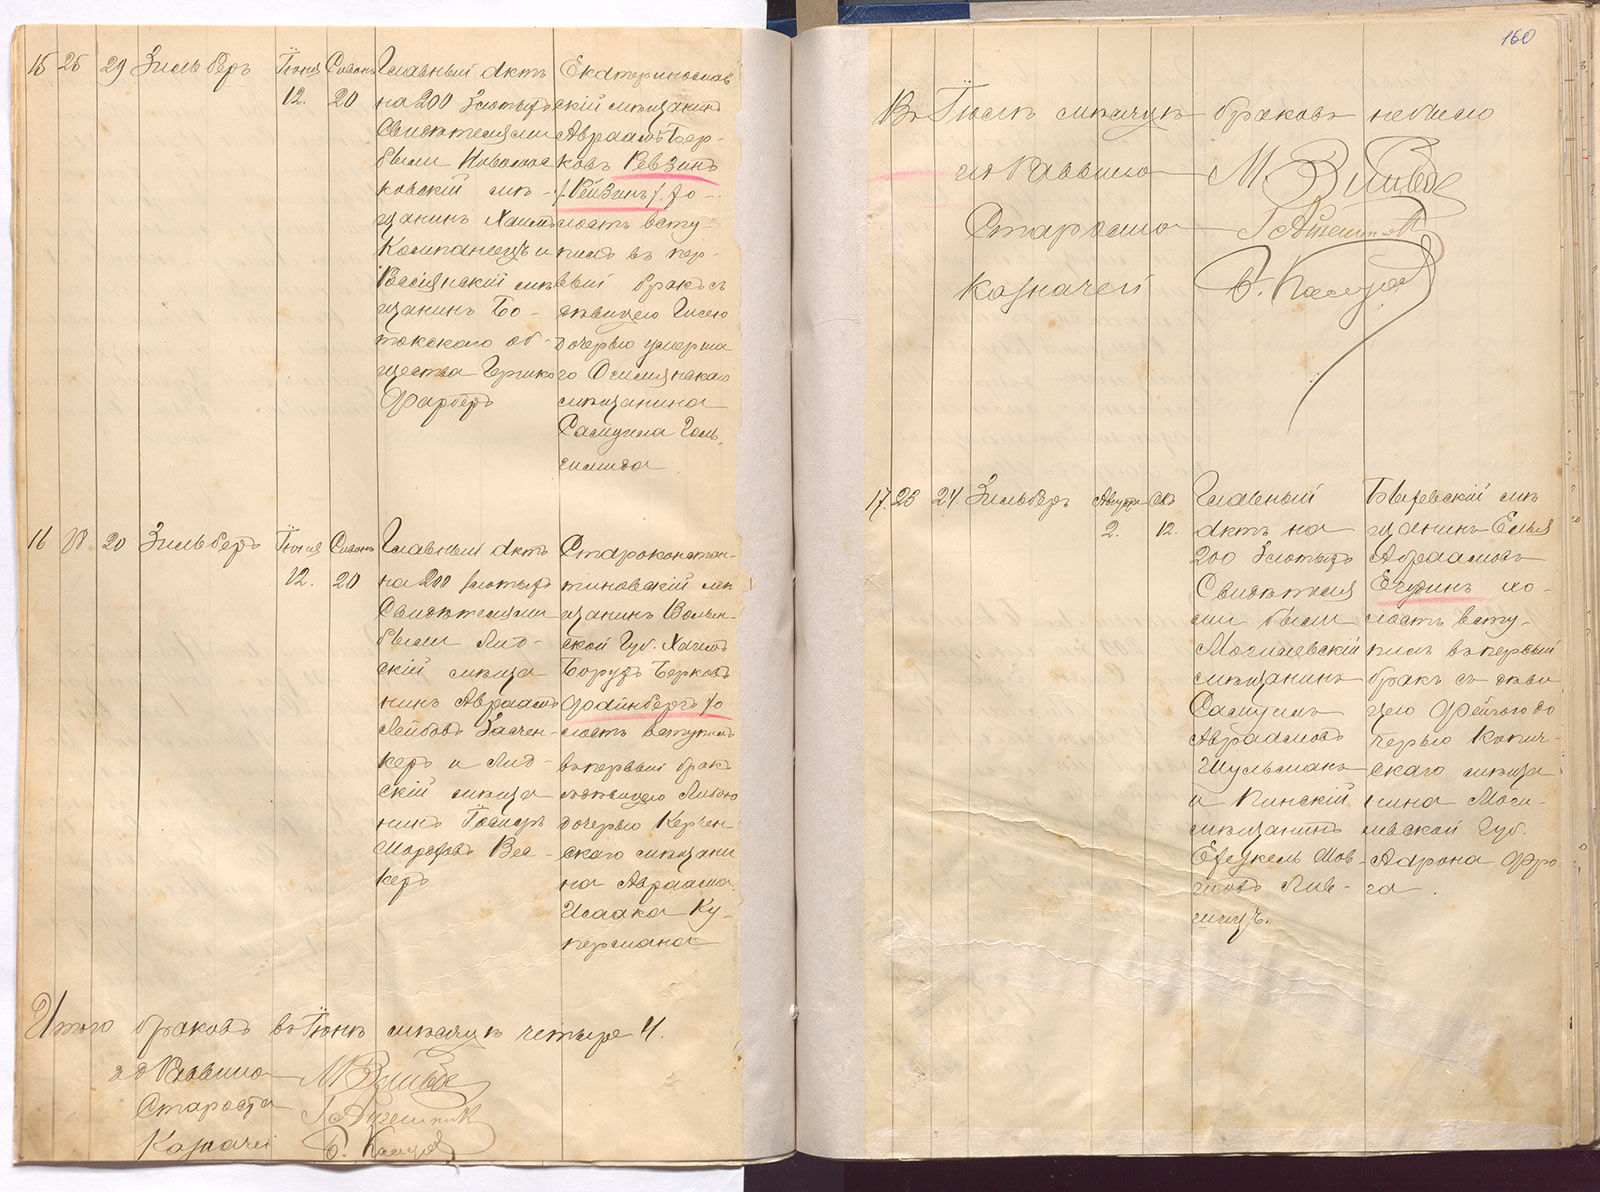 15 25 29 Зильберъ Іюня 12. Сивонъ 20
Главный актъ
на 200 Злотыхъ
Свидѣтелями
были Новомос
ковскій мѣ-
щанинъ Хаимъ
Компанеецъ и
мѣ
щанинъ Бо-
токскаго об-
щества Гершко
Фарберъ
Екатеринослав
скій мѣщанинъ
Авраамъ Бер-
ковъ Ревзинъ
/Рейзинъ/ хо-
лостъ всту-
пилъ въ пер-
вый бракъ съ
дѣвицею Гисею
дочерью умерша
го Ошмянскаго
мѣщанина
СамуилаГоль-
дмида
16 18 20 Зильберъ Іюня 12. Сивонъ 20
Главный актъ
на 200 злотыхъ
Свидѣтелями
были Лид-
скій мѣща
нинъ Авраамъ
Лейбовъ
керъ и Лид-
скій мѣща
нинъ
Вее-
керъ
Староконстан-
тиновскій мѣ
щанинъ Волын-
ской Губ. Хаимъ
Борухъ Берковъ
Файнбергъ хо
лостъ вступилъ
въ первый бракъ
съ дѣвицею Либою
дочерью Керчен
скаго мѣщани
на Авраама
Исаака Ку-
пермана
Итого браковъ въ Іюнѣ мѣсяцѣ четыре 4.
и д Раввина
Староста
Казначей
160
Въ Іюлѣ мѣсяцѣ браковъ небыло
и д Раввина
Староста
Казначей
17. 25 24 Зильберъ Августа 2. Абъ 12.
Главный
актъ на
200 Злотыхъ
Свидѣтеля
ми были
Могилевскій
мѣщанинъ
Самуилъ
Авраамовъ
Шульманъ
и Пинскій
мѣщанинъ
Ехезкель Мов-
шовъ Лив-
шицъ.
Быховскій мѣ
щанинъ Елья
Абрамовъ
Егудинъ хо-
лостъ всту-
пилъ въ первый
бракъ съ дѣви
цею Фейгою до
черью Копыс-
скаго мѣща
нина Моги-
левской Губ.
Аарона Фру
га.